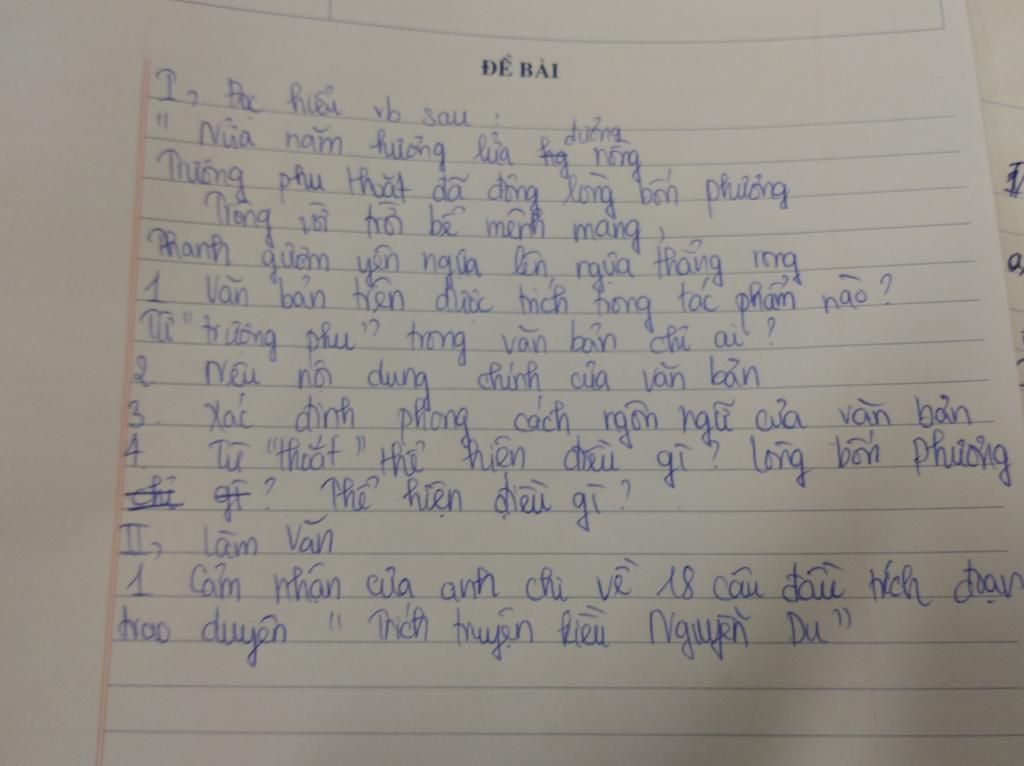 ĐỀ BÀI
I, Đọc hiểu vb sau:
"Nửa năm hương lửa đương nồng
Trượng phu thoắt đã động lòng bốn phương
Trông vời trời bể mênh mang,
Thanh gươm yên ngựa lên ngựa thẳng rong
1 Văn bản trên được trích trong tác phẩm nào?
Từ "trượng phu" trong văn bản chỉ ai?
2 Nêu nội dung chính của văn bản
3. Xác định phong cách ngôn ngữ của văn bản
4 Từ "thoắt" thể hiện điều gì? lòng bốn phương
chỉ gì? Thể hiện điều gì?
II, Làm Văn
1 Cảm nhận của anh chị về 18 câu đầu trích đoạn
trao duyên "Trích truyện kiều Nguyễn Du"